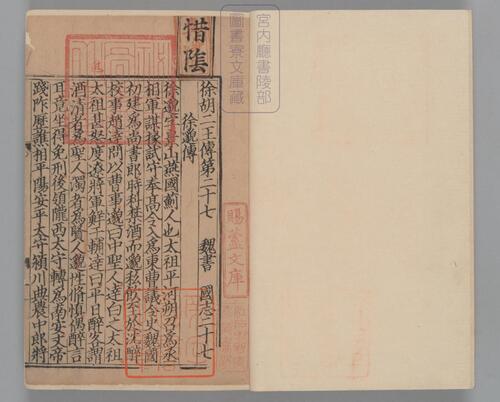 惜陰
宮内廳書陵部
圖書寮文庫藏
徐胡二王傳第二十七　魏書　國志二十七
徐邈傳
徐邈字景山燕國薊人也太祖平河朔召爲丞
相軍謀掾試守奉髙令入爲東曹議令史魏國
初建爲尚書郎時科禁酒而邈私飲至於沈醉
校事趙達問以曹事邈曰中聖人達白之太祖
太祖甚怒度遼將軍鮮于輔進曰平日醉客謂
酒清者爲聖人濁者爲賢人邈性脩愼偶醉言
耳竟坐得免刑後領隴西太守轉爲南安文帝
踐祚歴譙相平陽安平太守潁川典農中郎將
賜蘆文庫